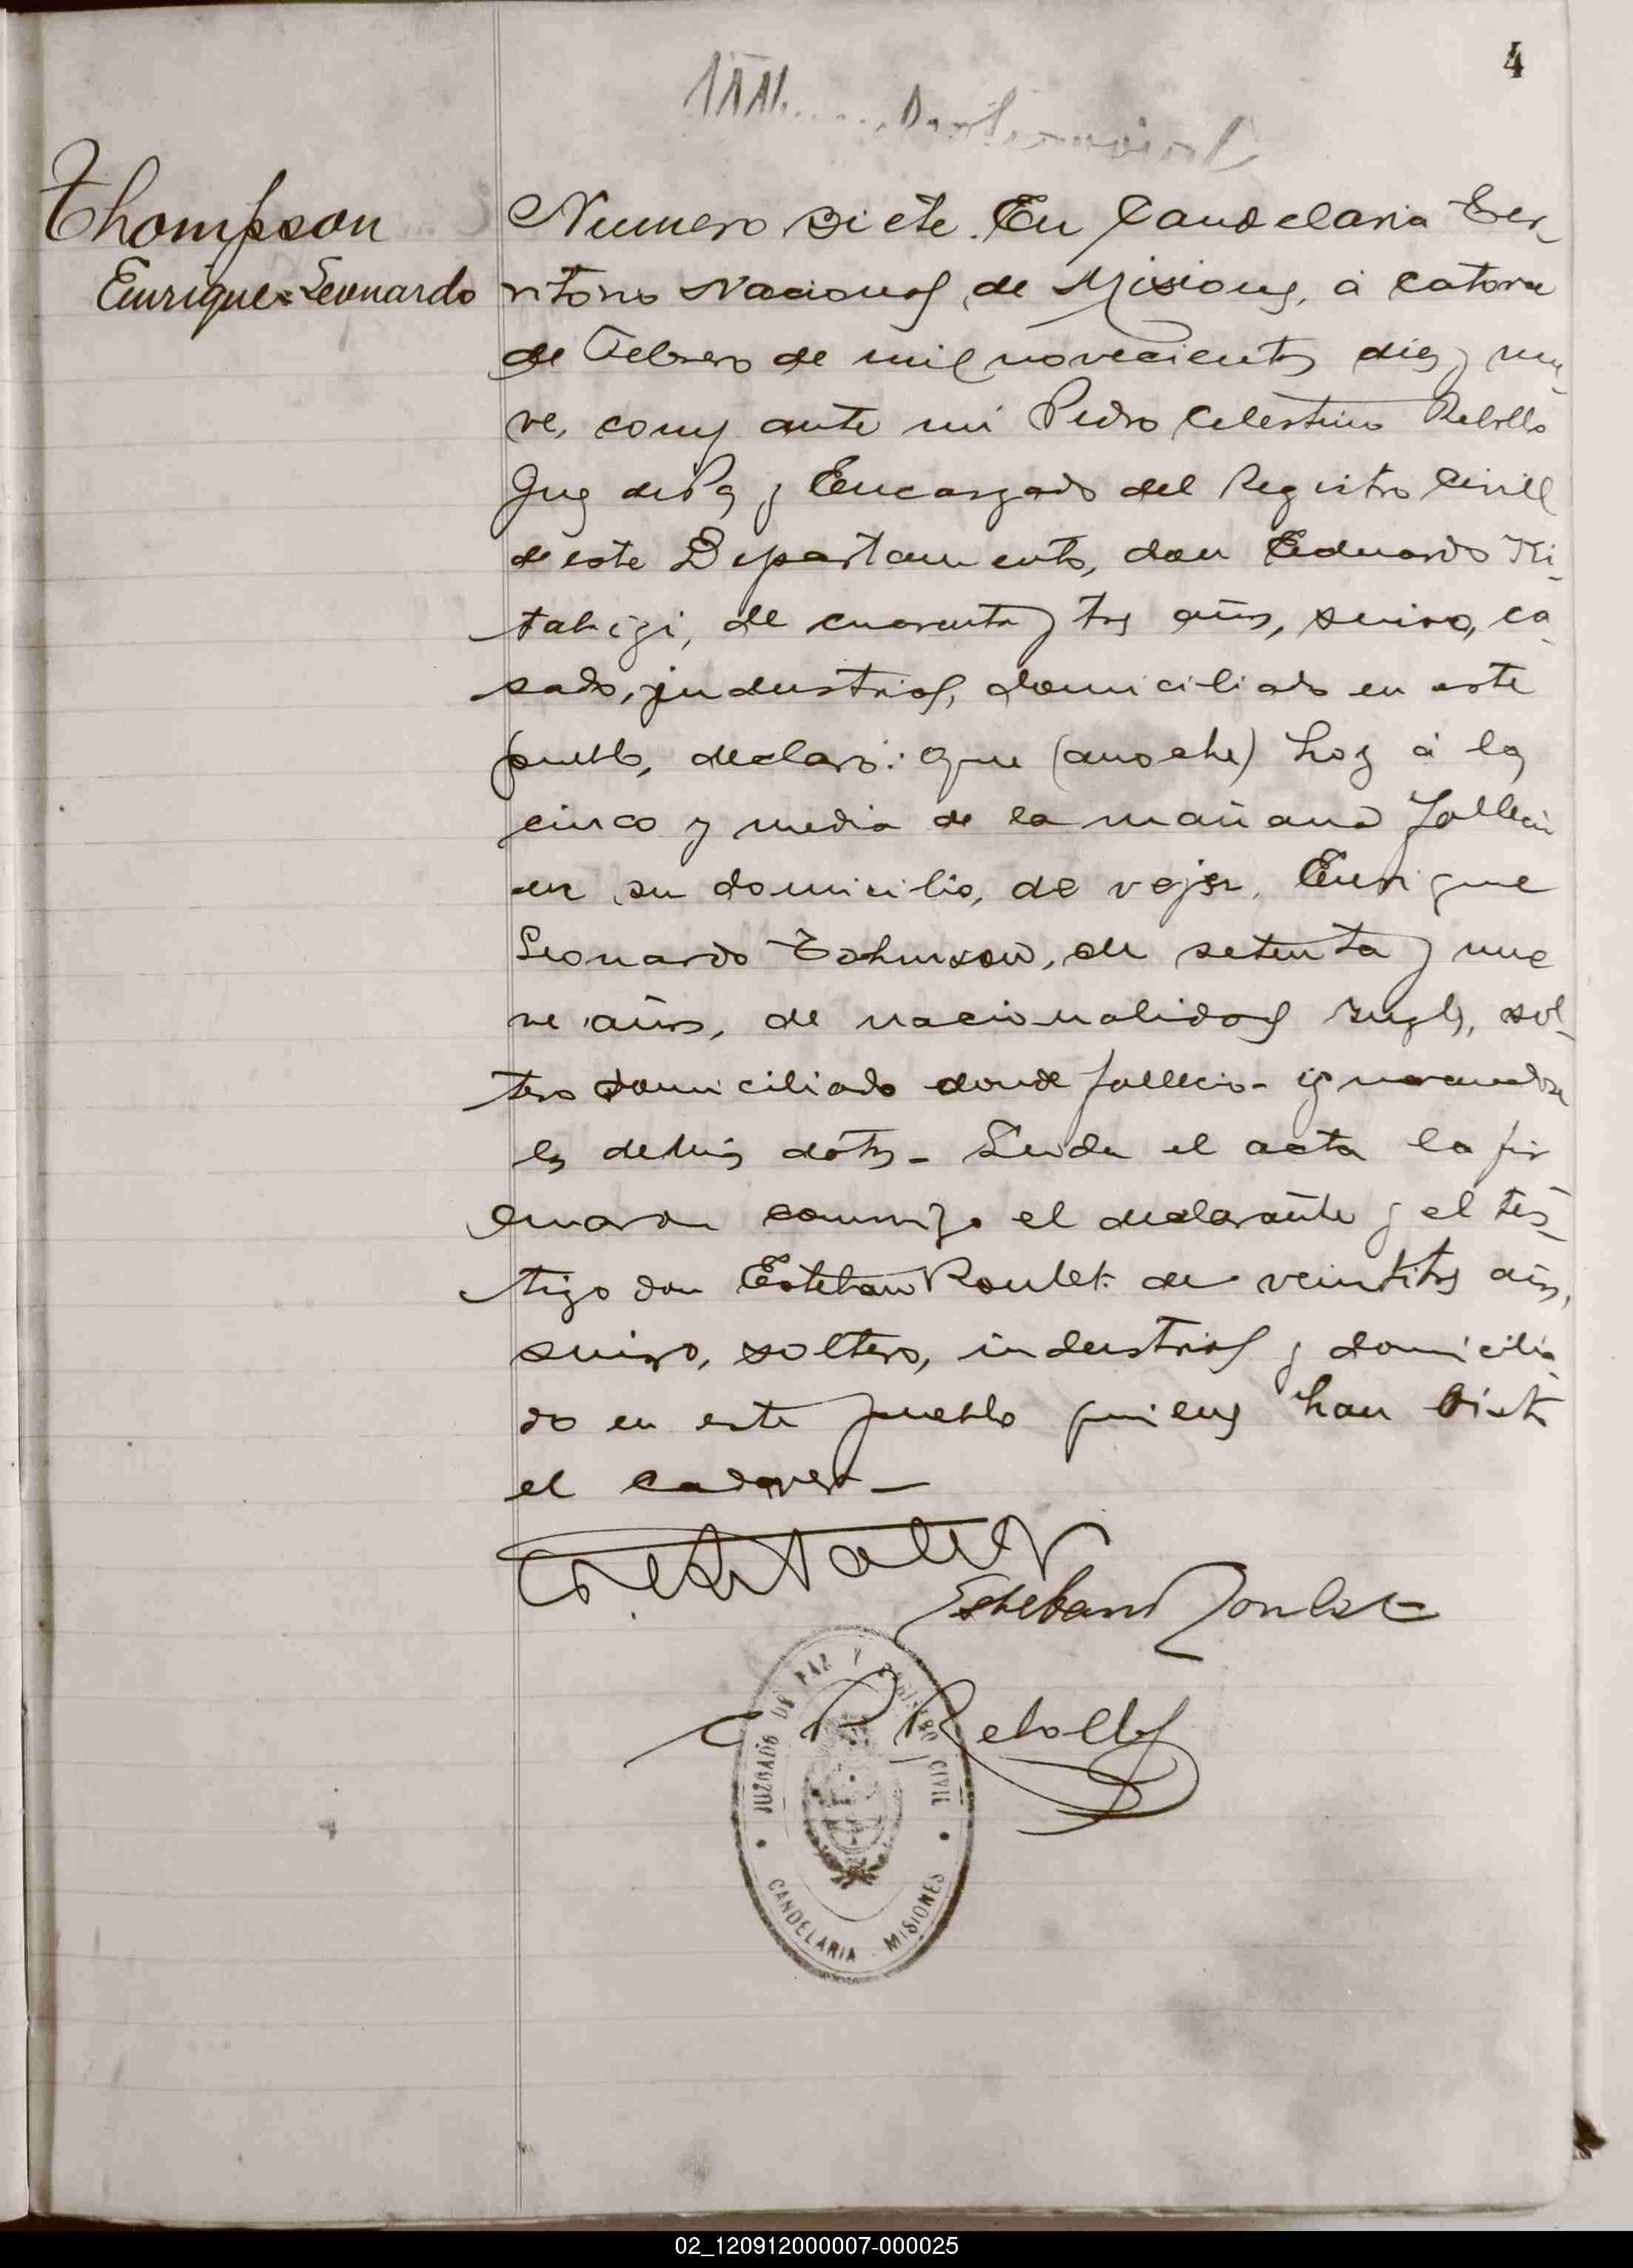 4
Thompson
Enrique Leonardo
Numero siete. En Candelaria Ter-
ritorio Nacional de Misiones, á catorce
de Febrero de mil novecientos diez y nue-
ve, comp. ante mi Pedro Celestino Rebollo
Juez de Paz y Encargado del Registro Civil
de este Departamento, don Eduardo
de cuarenta y tres años, suizo, ca-
sado, industrial, domiciliado en este
pueblo, declaró: que (anoche) hoy á las
cinco y media de la mañana falleció
en su domicilio, de vejez, Enrique
Leonardo de setenta y nue
ve años, de nacionalidad Inglés, sol-
tero domiciliado donde falleció - ignorandose
los demás datos - Leida el acta la fir
maron conmigo el declarante y el tes-
tigo don Esteban Roulet de veintitres años,
suizo, soltero, industrial y domicilia-
do en este pueblo quienes han visto
el cadaver -
Esteban Roulet
C P Rebollo
JUZGADO DE PAZ Y REGISTRO CIVIL
CANDELARIA - MISIONES
02_120912000007-000025